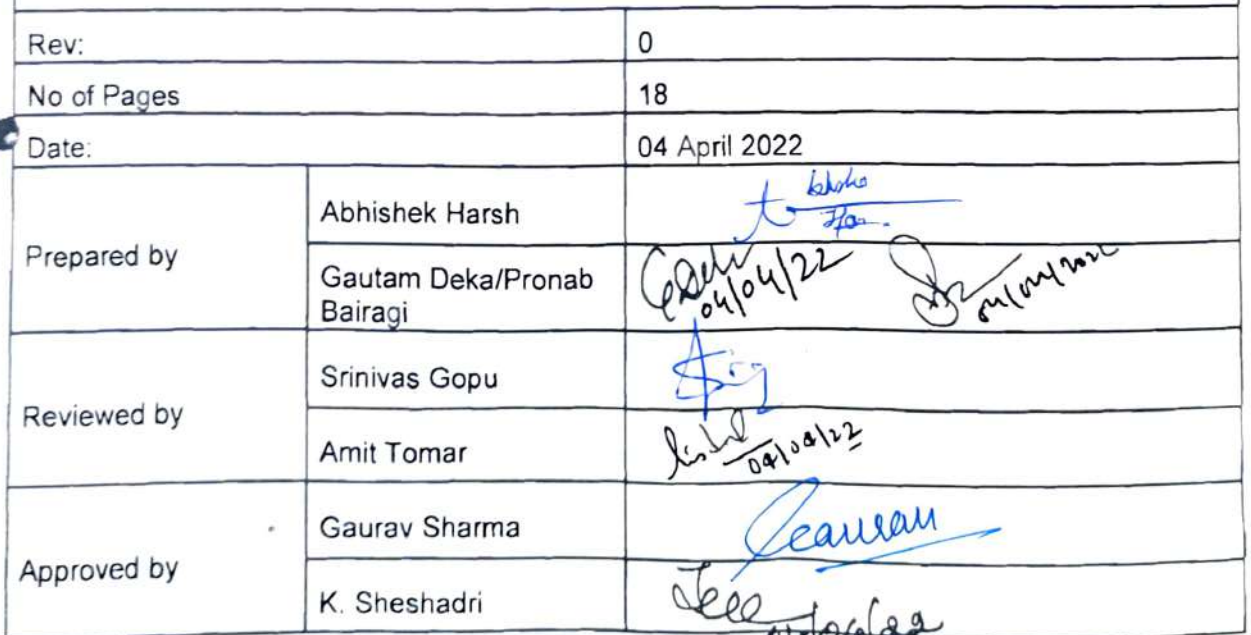 Rev: 0
No of Pages 18
Date: 04 April 2022
Prepared by
Abhishek Harsh
Gautam Deka/Pronab
Bairagi
04/04/22
04/04/2022
Reviewed by
Srinivas Gopu
Amit Tomar
04/04/22
Approved by
Gaurav Sharma
Gaurav
K. Sheshadri